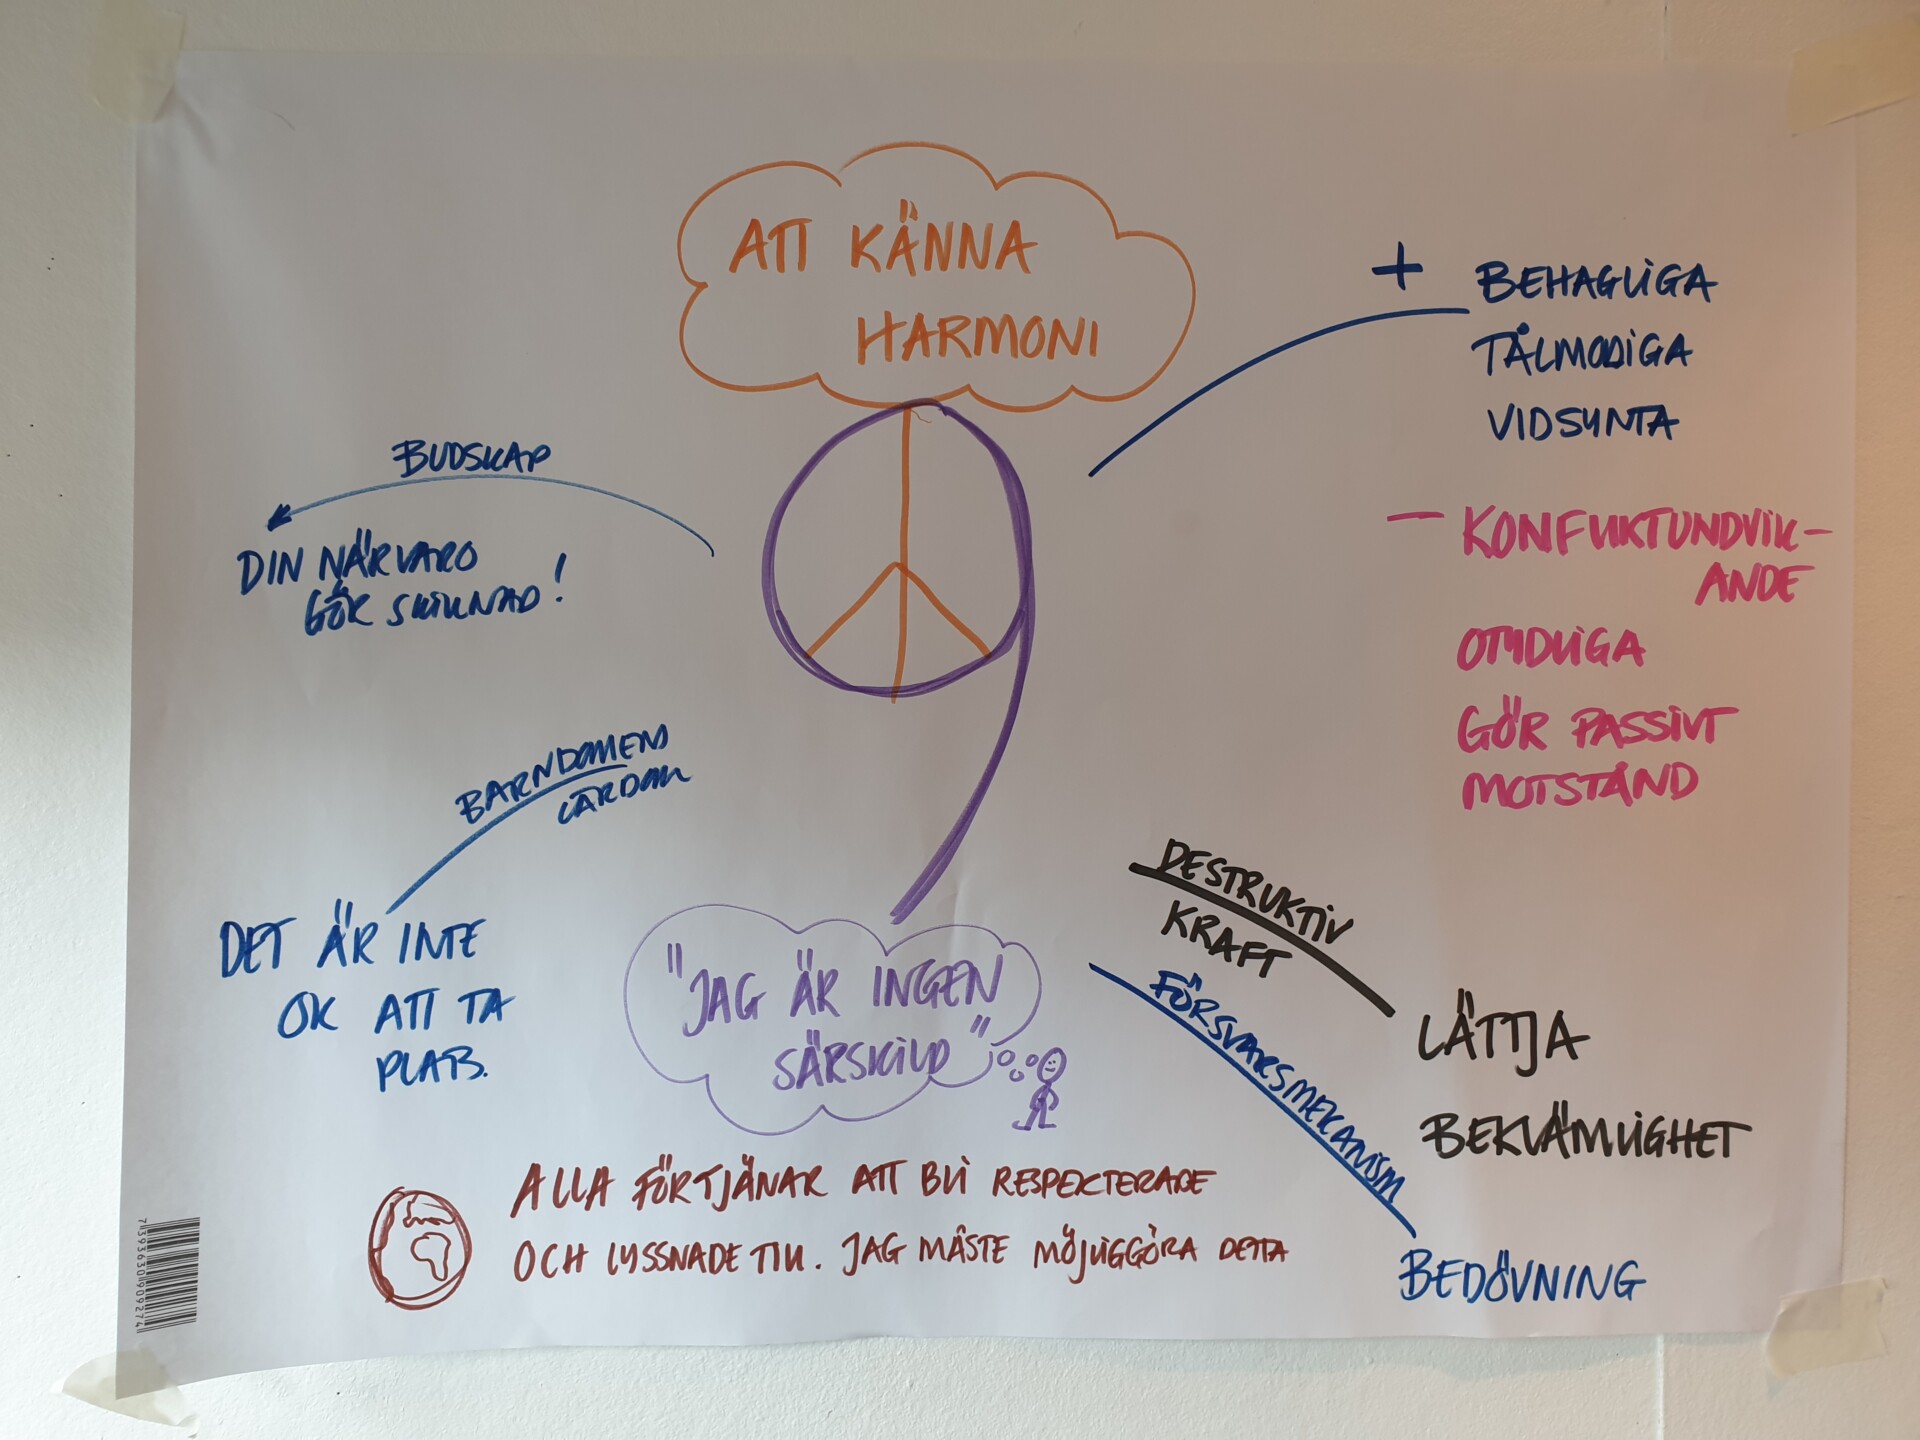 ATT KÄNNA
HARMONI
+ BEHAGLIGA
TÅLMODIGA
VIDSYNTA
- KONFLIKTUNDVIK-
ANDE
OTYDLIGA
GÖR PASSIVT
MOTSTÅND
BUDSKAP
DIN NÄRVARO
GÖR SKILLNAD!
BARNDOMENS
LÄRDOM
DET ÄR INTE
OK ATT TA
PLATS.
"JAG ÄR INGEN
SÄRSKILD"
DESTRUKTIV
KRAFT
LÄTTJA
BEKVÄMLIGHET
FÖRSVARSMEKANISM
BEDÖVNING
ALLA FÖRTJÄNAR ATT BLI RESPEKTERADE
OCH LYSSNADE TILL. JAG MÅSTE MÖJLIGGÖRA DETTA
7393630909274